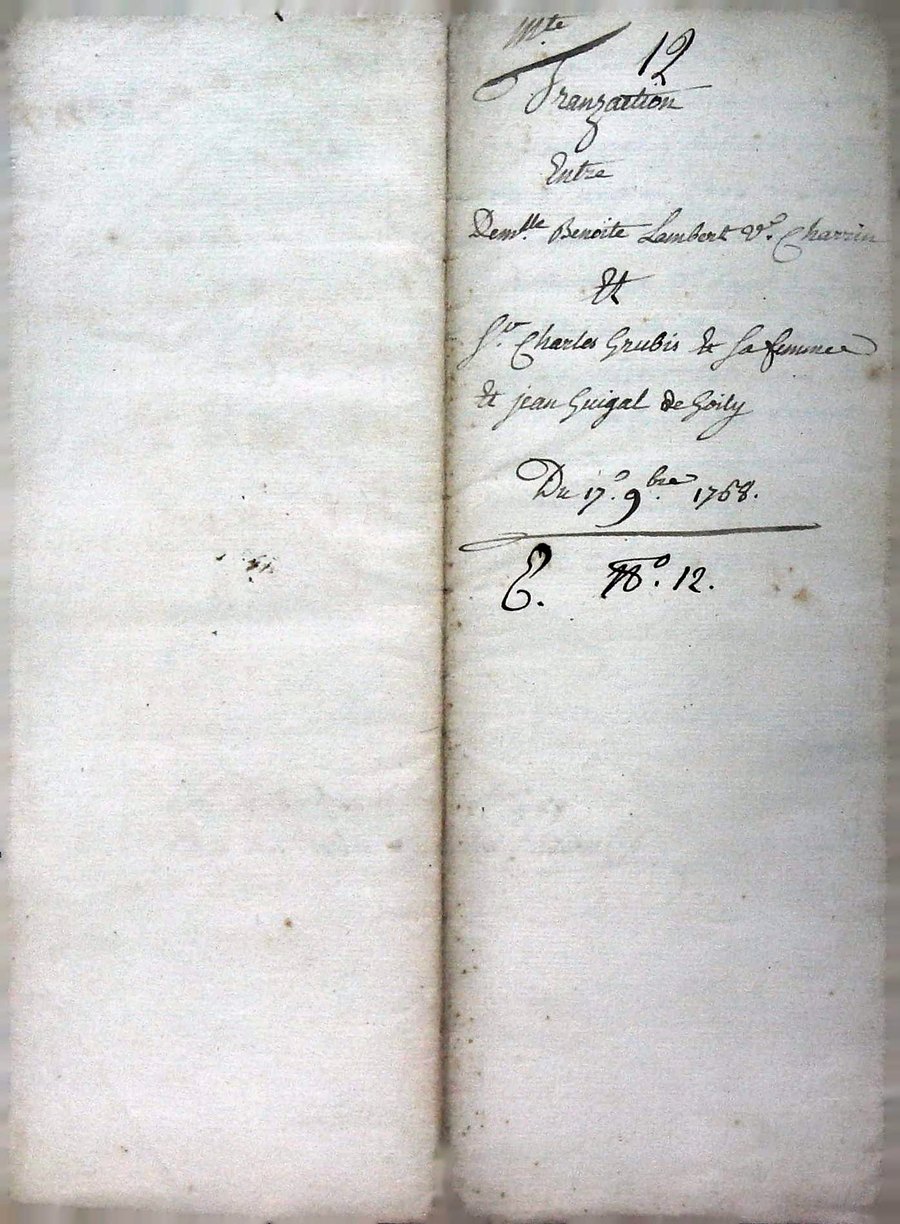 mte
12
Tranzaction
Entre
Demlle Benoite Lambert Ve. Charrin
Et
Sr. Charles Grubis & Sa femme
& jean Guigal de Goily
Du 17e. 9bre. 1768.
C. No. 12.